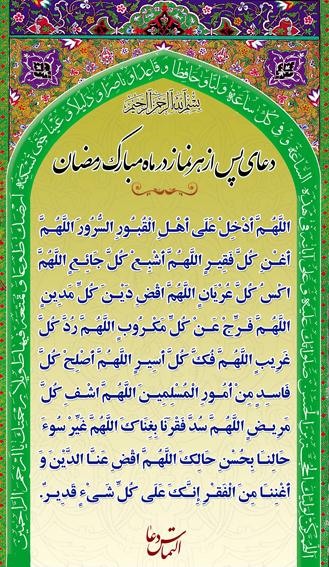 بسم الله الرحمن الرحیم
دعای پس از هر نماز در ماه مبارک رمضان
اَللّهُمَّ اَدْخِلْ عَلى اَهْلِ الْقُبُورِ السُّرُورَ اَللّهُمَّ
اَغْنِ كُلَّ فَقيرٍ اَللّهُمَّ اَشْبِعْ كُلَّ جائِعٍ اَللّهُمَّ
اكْسُ كُلَّ عُرْيانٍ اَللّهُمَّ اقْضِ دَيْنَ كُلِّ مَدينٍ
اَللّهُمَّ فَرِّجْ عَنْ كُلِّ مَكْرُوبٍ اَللّهُمَّ رُدَّ كُلَّ
غَريبٍ اَللّهُمَّ فُكَّ كُلَّ اَسيرٍ اَللّهُمَّ اَصْلِحْ كُلَّ
فاسِدٍ مِنْ اُمُورِ الْمُسْلِمينَ اَللّهُمَّ اشْفِ كُلَّ
مَريضٍ اَللّهُمَّ سُدَّ فَقْرَنا بِغِناكَ اَللّهُمَّ غَيِّرْ سُوءَ
حالِنا بِحُسْنِ حالِكَ اَللّهُمَّ اقْضِ عَنَّا الدَّيْنَ وَ
اَغْنِنا مِنَ الْفَقْرِ اِنَّكَ عَلى كُلِّ شَىْءٍ قَديرٌ.
التماس دعا